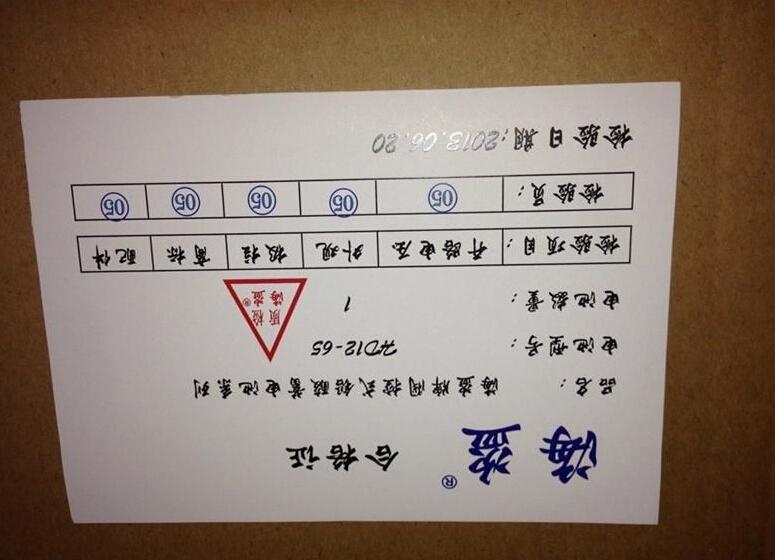 海盗® 合格证
品名： 海盗牌阀控式铅酸蓄电池系列
电池型号： HD12-65
电池数量： 1
质检
海盗®
检验项目： 开路电压 外观 极柱 商标 配件
检验员： 05 05 05 05 05
检验日期：2013.06.20